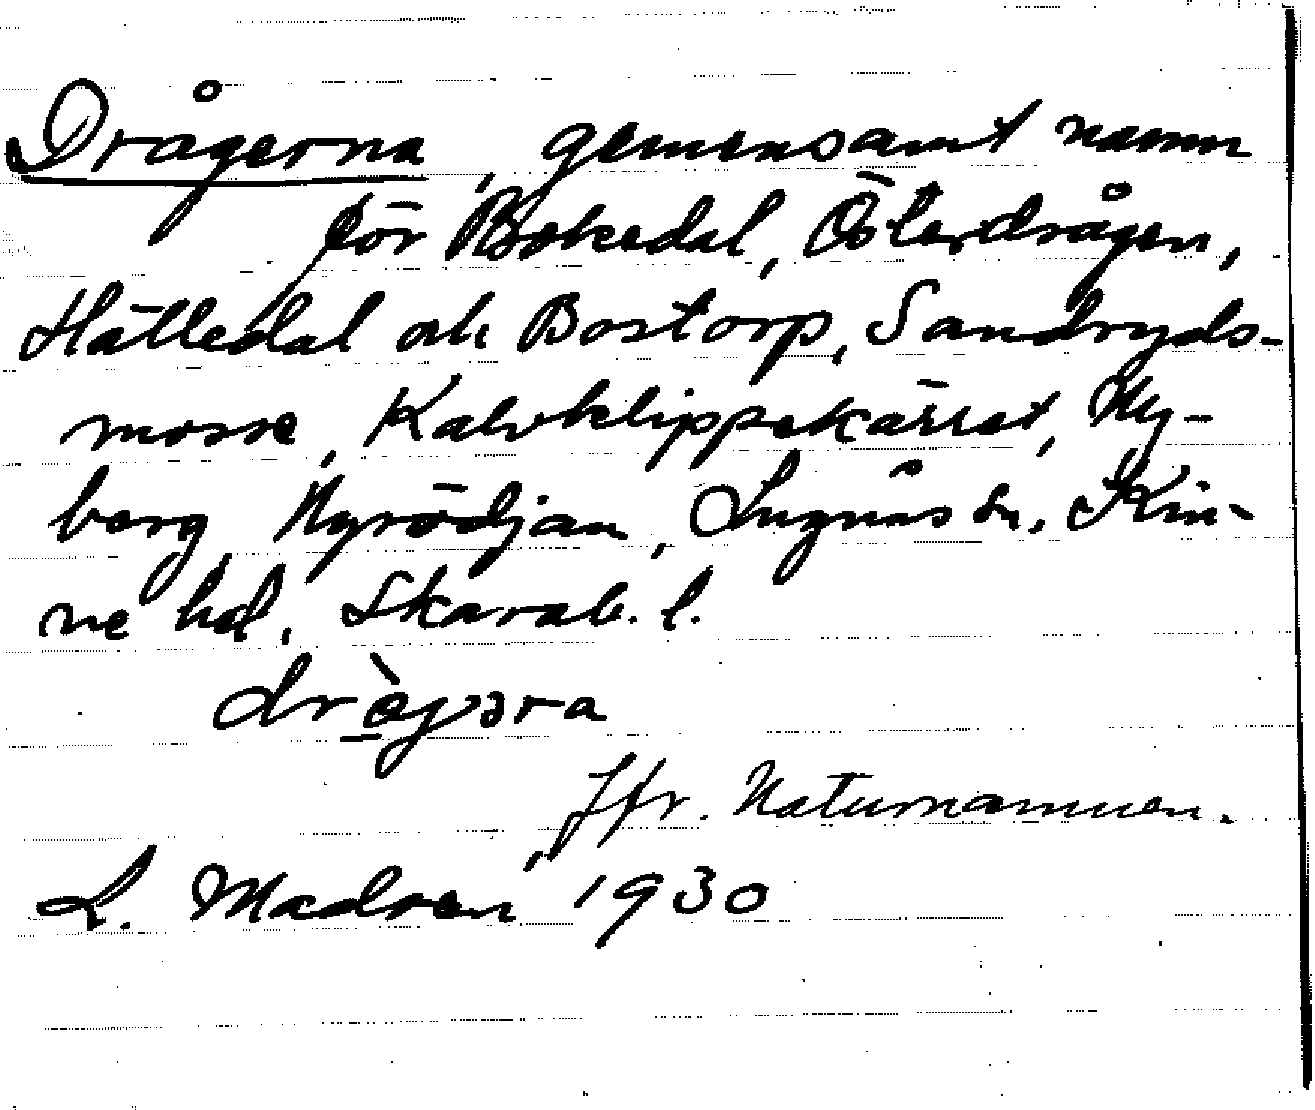 Drågerna, gemensamt namn
för Bokedal, Österdrågen,
Hälledal och Bostorp, Sandryds-
mosse, Kalvklippekärret, Ny-
berg Nyrödjan, Lugnås sn, Kin-
ne hd, Skarab. l.
Jfr. Naturnamnen.
L. Madsen 1930